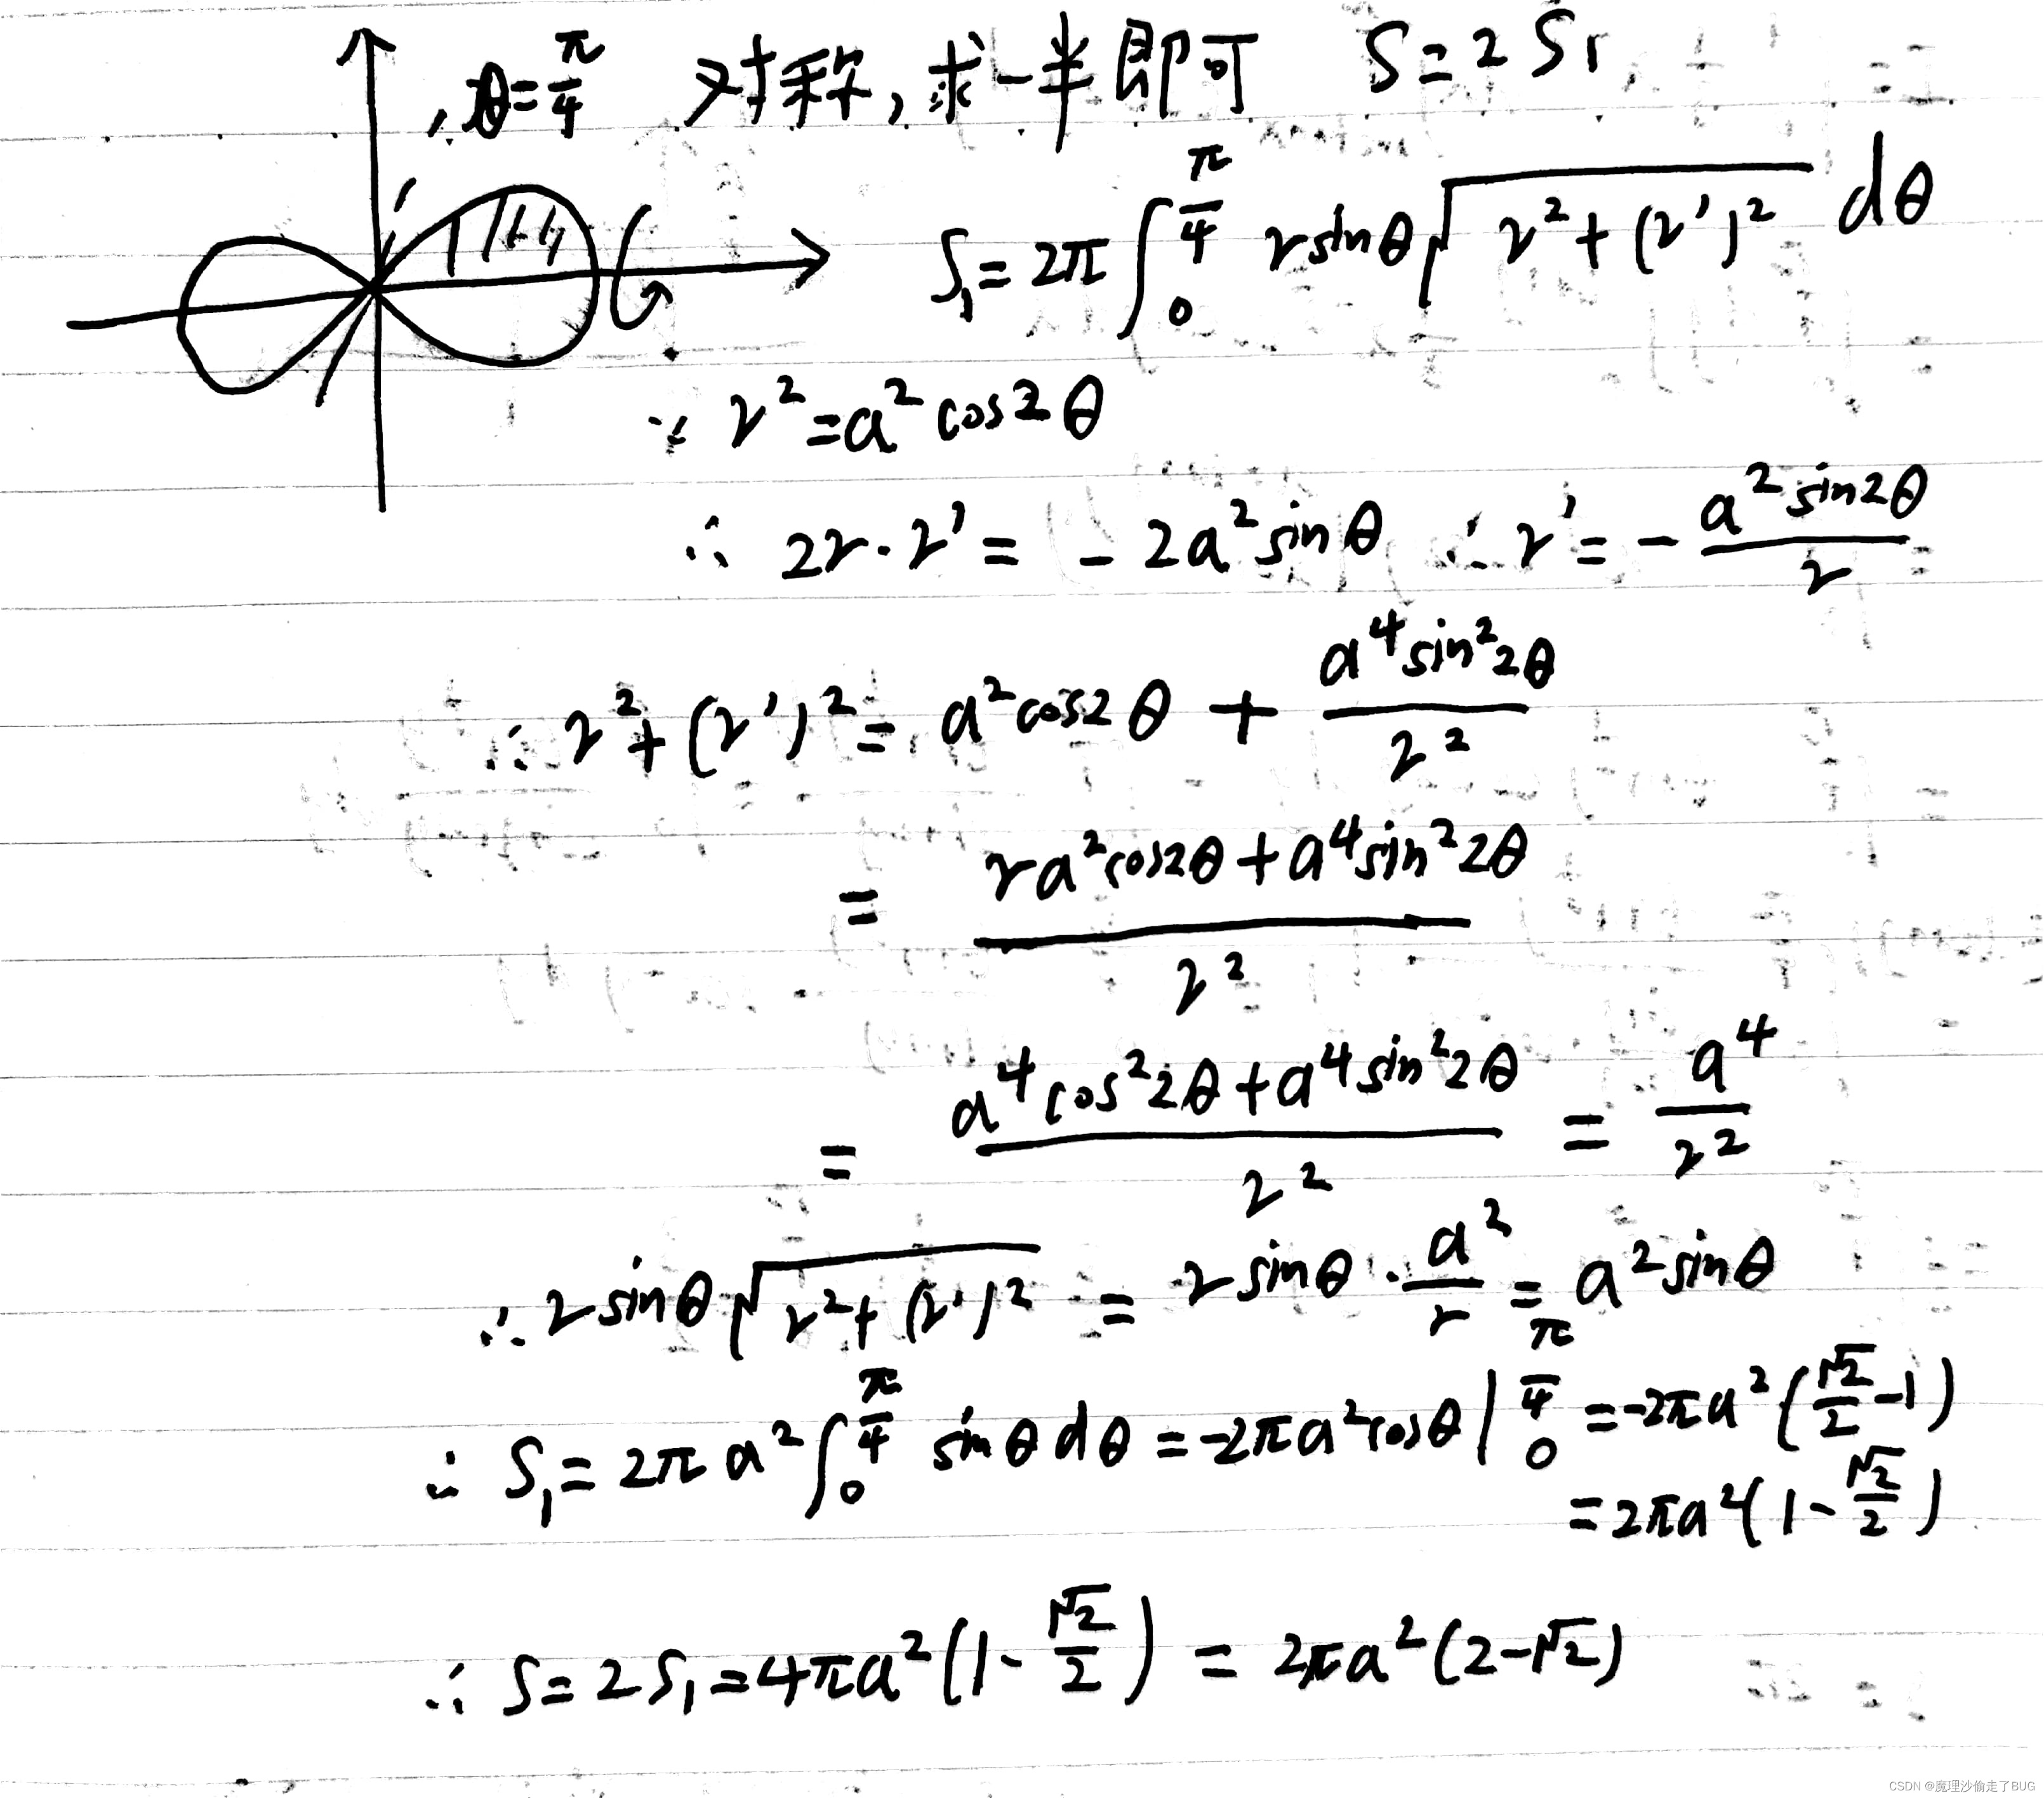 θ=π/4 对称,求一半即可 S=2S₁
S₁=2π∫₀^(π/4) rsinθ√(r²+(r′)²) dθ
∵ r²=a²cos2θ
∴ 2r·r′=-2a²sinθ ∴ r′=-a²sin2θ/r
∴ r²+(r′)²=a²cos2θ+a⁴sin²2θ/r²
=(ra²cos2θ+a⁴sin²2θ)/r²
=(a⁴cos²2θ+a⁴sin²2θ)/r²=a⁴/r²
∴ rsinθ√(r²+(r′)²)=rsinθ·a²/r=a²sinθ
∴ S₁=2πa²∫₀^(π/4) sinθdθ=-2πa²cosθ|₀^(π/4)=-2πa²(√2/2-1)
=2πa²(1-√2/2)
∴ S=2S₁=4πa²(1-√2/2)=2πa²(2-√2)
CSDN @魔理沙偷走了BUG